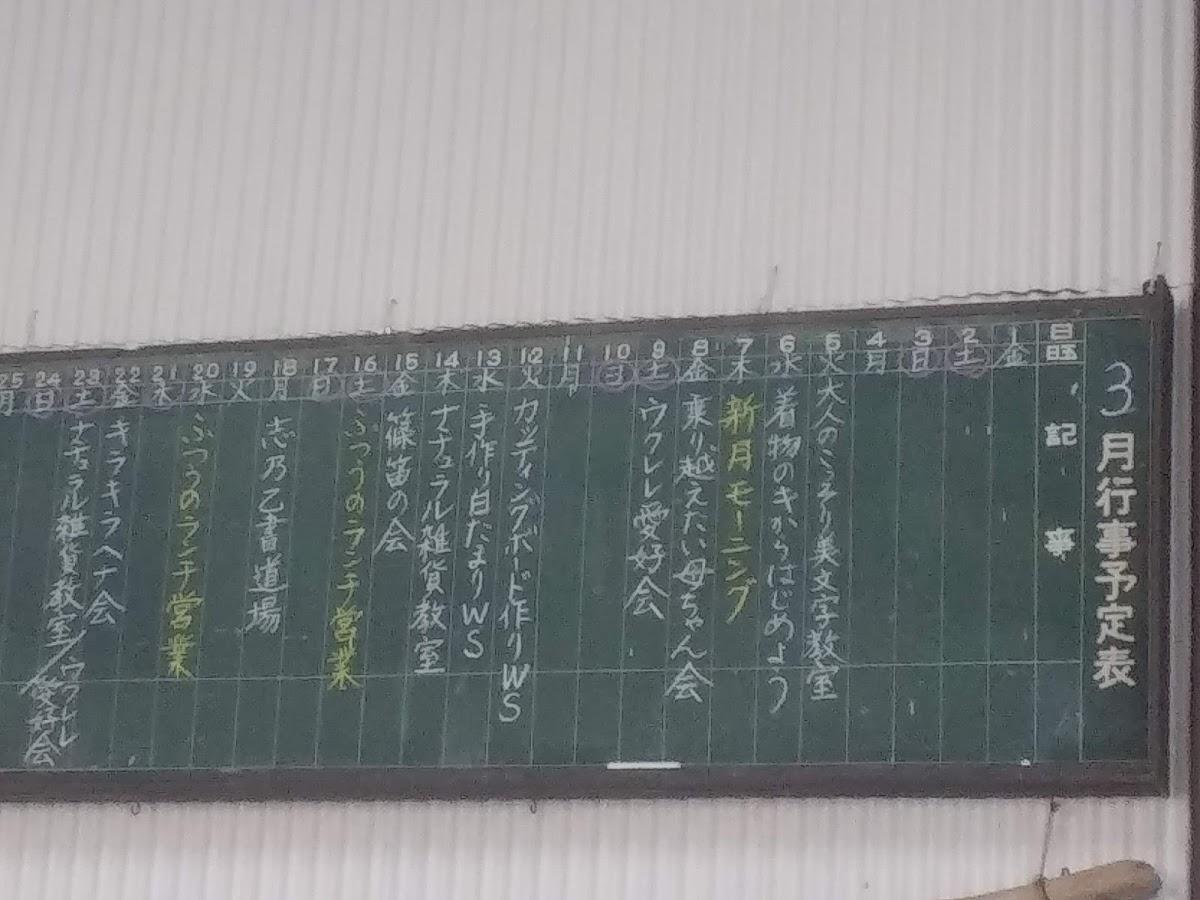 3月行事予定表
日 曜 記事
1 金
2 土
3 日
4 月
5 火 大人のこっそり美文字教室
6 水 着物のキからはじめよう
7 木 新月モーニング
8 金 乗り越えたい母ちゃん会
9 土 ウクレレ愛好会
10 日
11 月
12 火 カッティングボード作りWS
13 水 手作り白だまりWS
14 木 ナチュラル雑貨教室
15 金 篠笛の会
16 土 ふつうのランチ営業
17 日
18 月 志乃乙書道場
19 火
20 水 ふつうのランチ営業
21 木
22 金 キラキラヘナ会
23 土 ナチュラル雑貨教室/ウクレレ愛好会
24 日
25 月